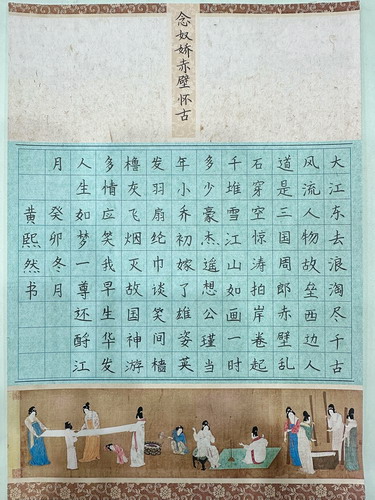 念奴娇赤壁怀古
大江东去浪淘尽千古
风流人物故垒西边人
道是三国周郎赤壁乱
石穿空惊涛拍岸卷起
千堆雪江山如画一时
多少豪杰遥想公瑾当
年小乔初嫁了雄姿英
发羽扇纶巾谈笑间樯
橹灰飞烟灭故国神游
多情应笑我早生华发
人生如梦一尊还酹江
月 癸卯冬月
黄熙然书